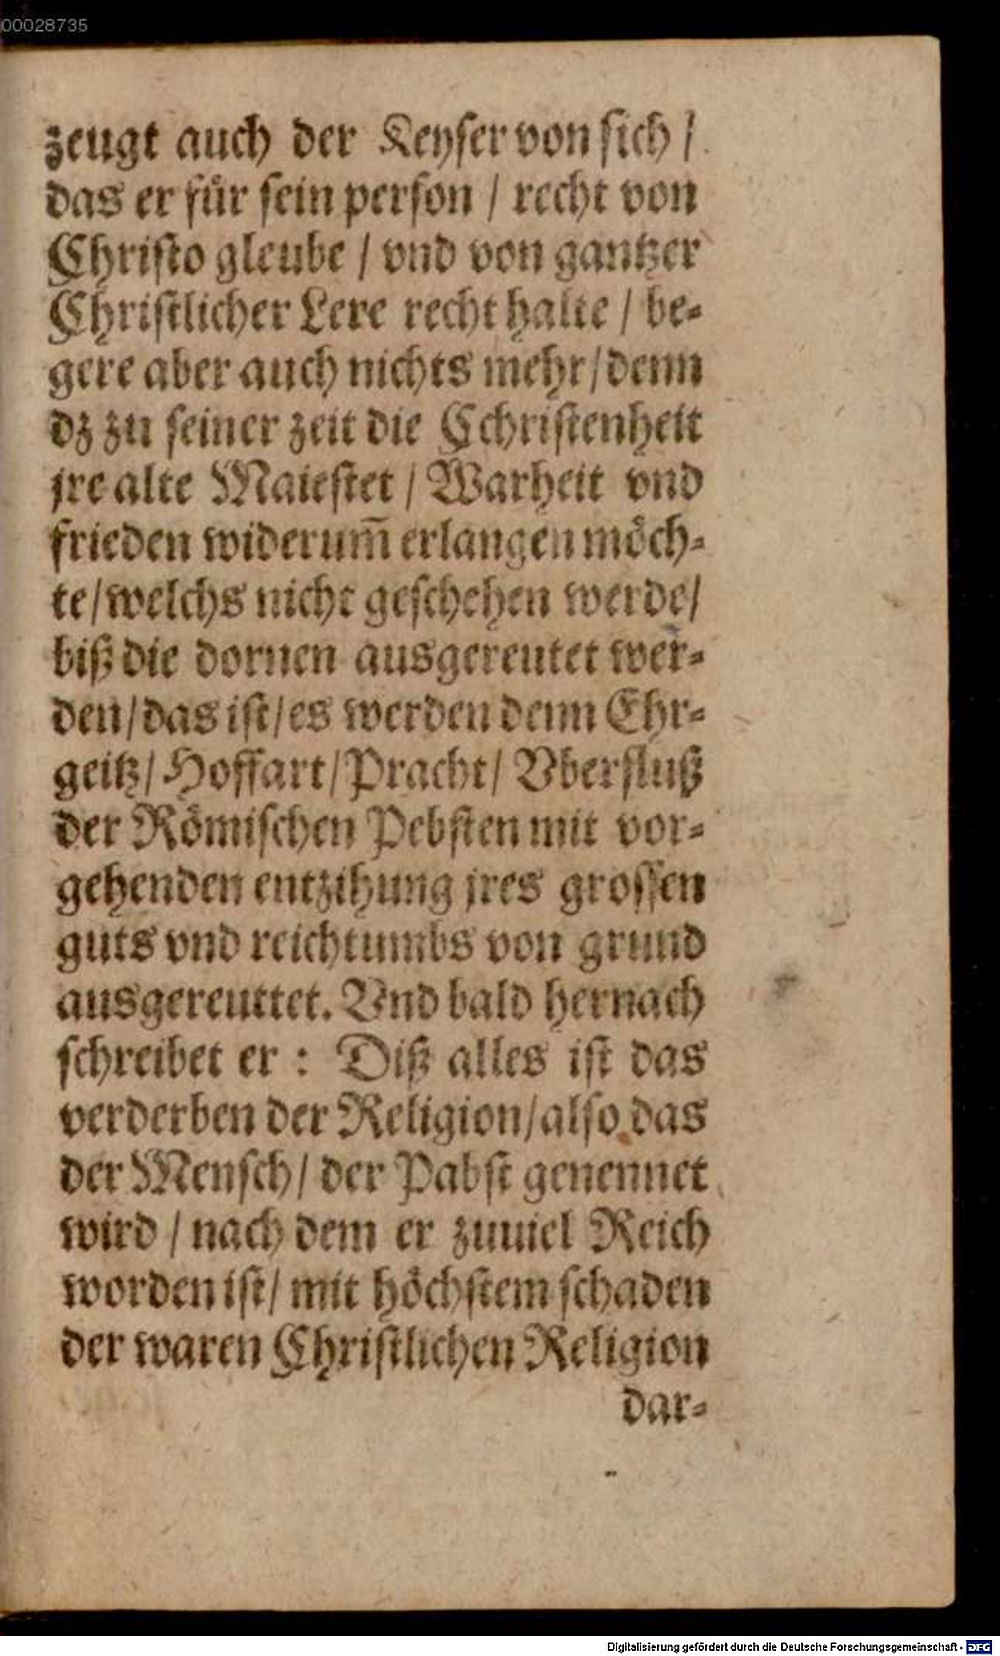 00028735
zeugt auch der Keyser von sich /
das er für sein person / recht von
Christo gleube / vnd von gantzer
Christlicher Lere recht halte / be-
gere aber auch nichts mehr / denn
dz zu seiner zeit die Cchristenheit
jre alte Maiestet / Warheit vnd
frieden widerum̃ erlangen möch-
te / welchs nicht geschehen werde /
biß die dornen ausgereutet wer-
den / das ist / es werden denn Ehr-
geitz / Hoffart / Pracht / Vberfluß
der Römischen Pebsten mit vor-
gehenden entzihung jres grossen
guts vnd reichtumbs von grund
ausgereuttet. Vnd bald hernach
schreibet er : Diß alles ist das
verderben der Religion / also das
der Mensch / der Pabst genennet
wird / nach dem er zuuiel Reich
worden ist / mit höchstem schaden
der waren Christlichen Religion
dar-
Digitalisierung gefördert durch die Deutsche Forschungsgemeinschaft - DFG